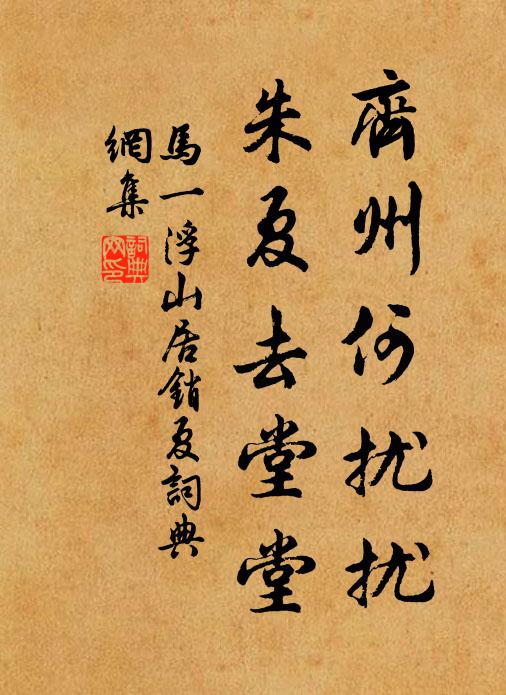 齊州何扰扰
朱夏去堂堂
馬一浮山居銷夏詞典
網集
詞典
网印